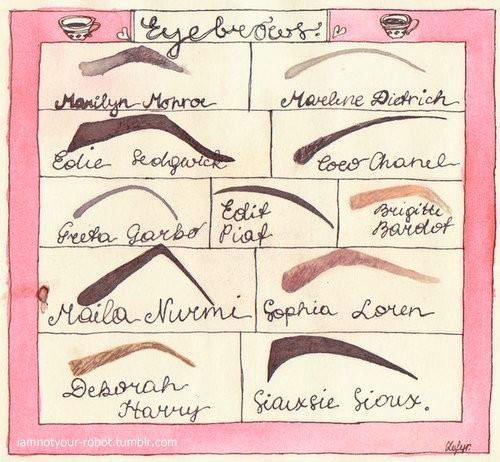 Eyebrows:
Marilyn Monroe
Marlene Dietrich
Edie Sedgwick
Coco Chanel
Greta Garbo
Edit
Piaf
Brigitte
Bardot
Maila Nurmi
Sophia Loren
Deborah
Harry
Siouxsie Sioux.
iamnotyour-robot.tumblr.com